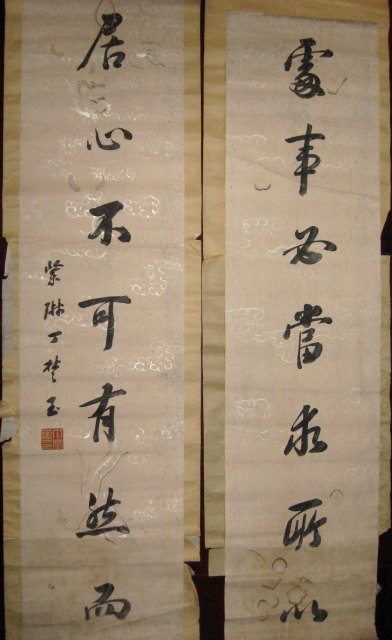 處事必當求所以
居心不可有然而
紫琳丁楚玉